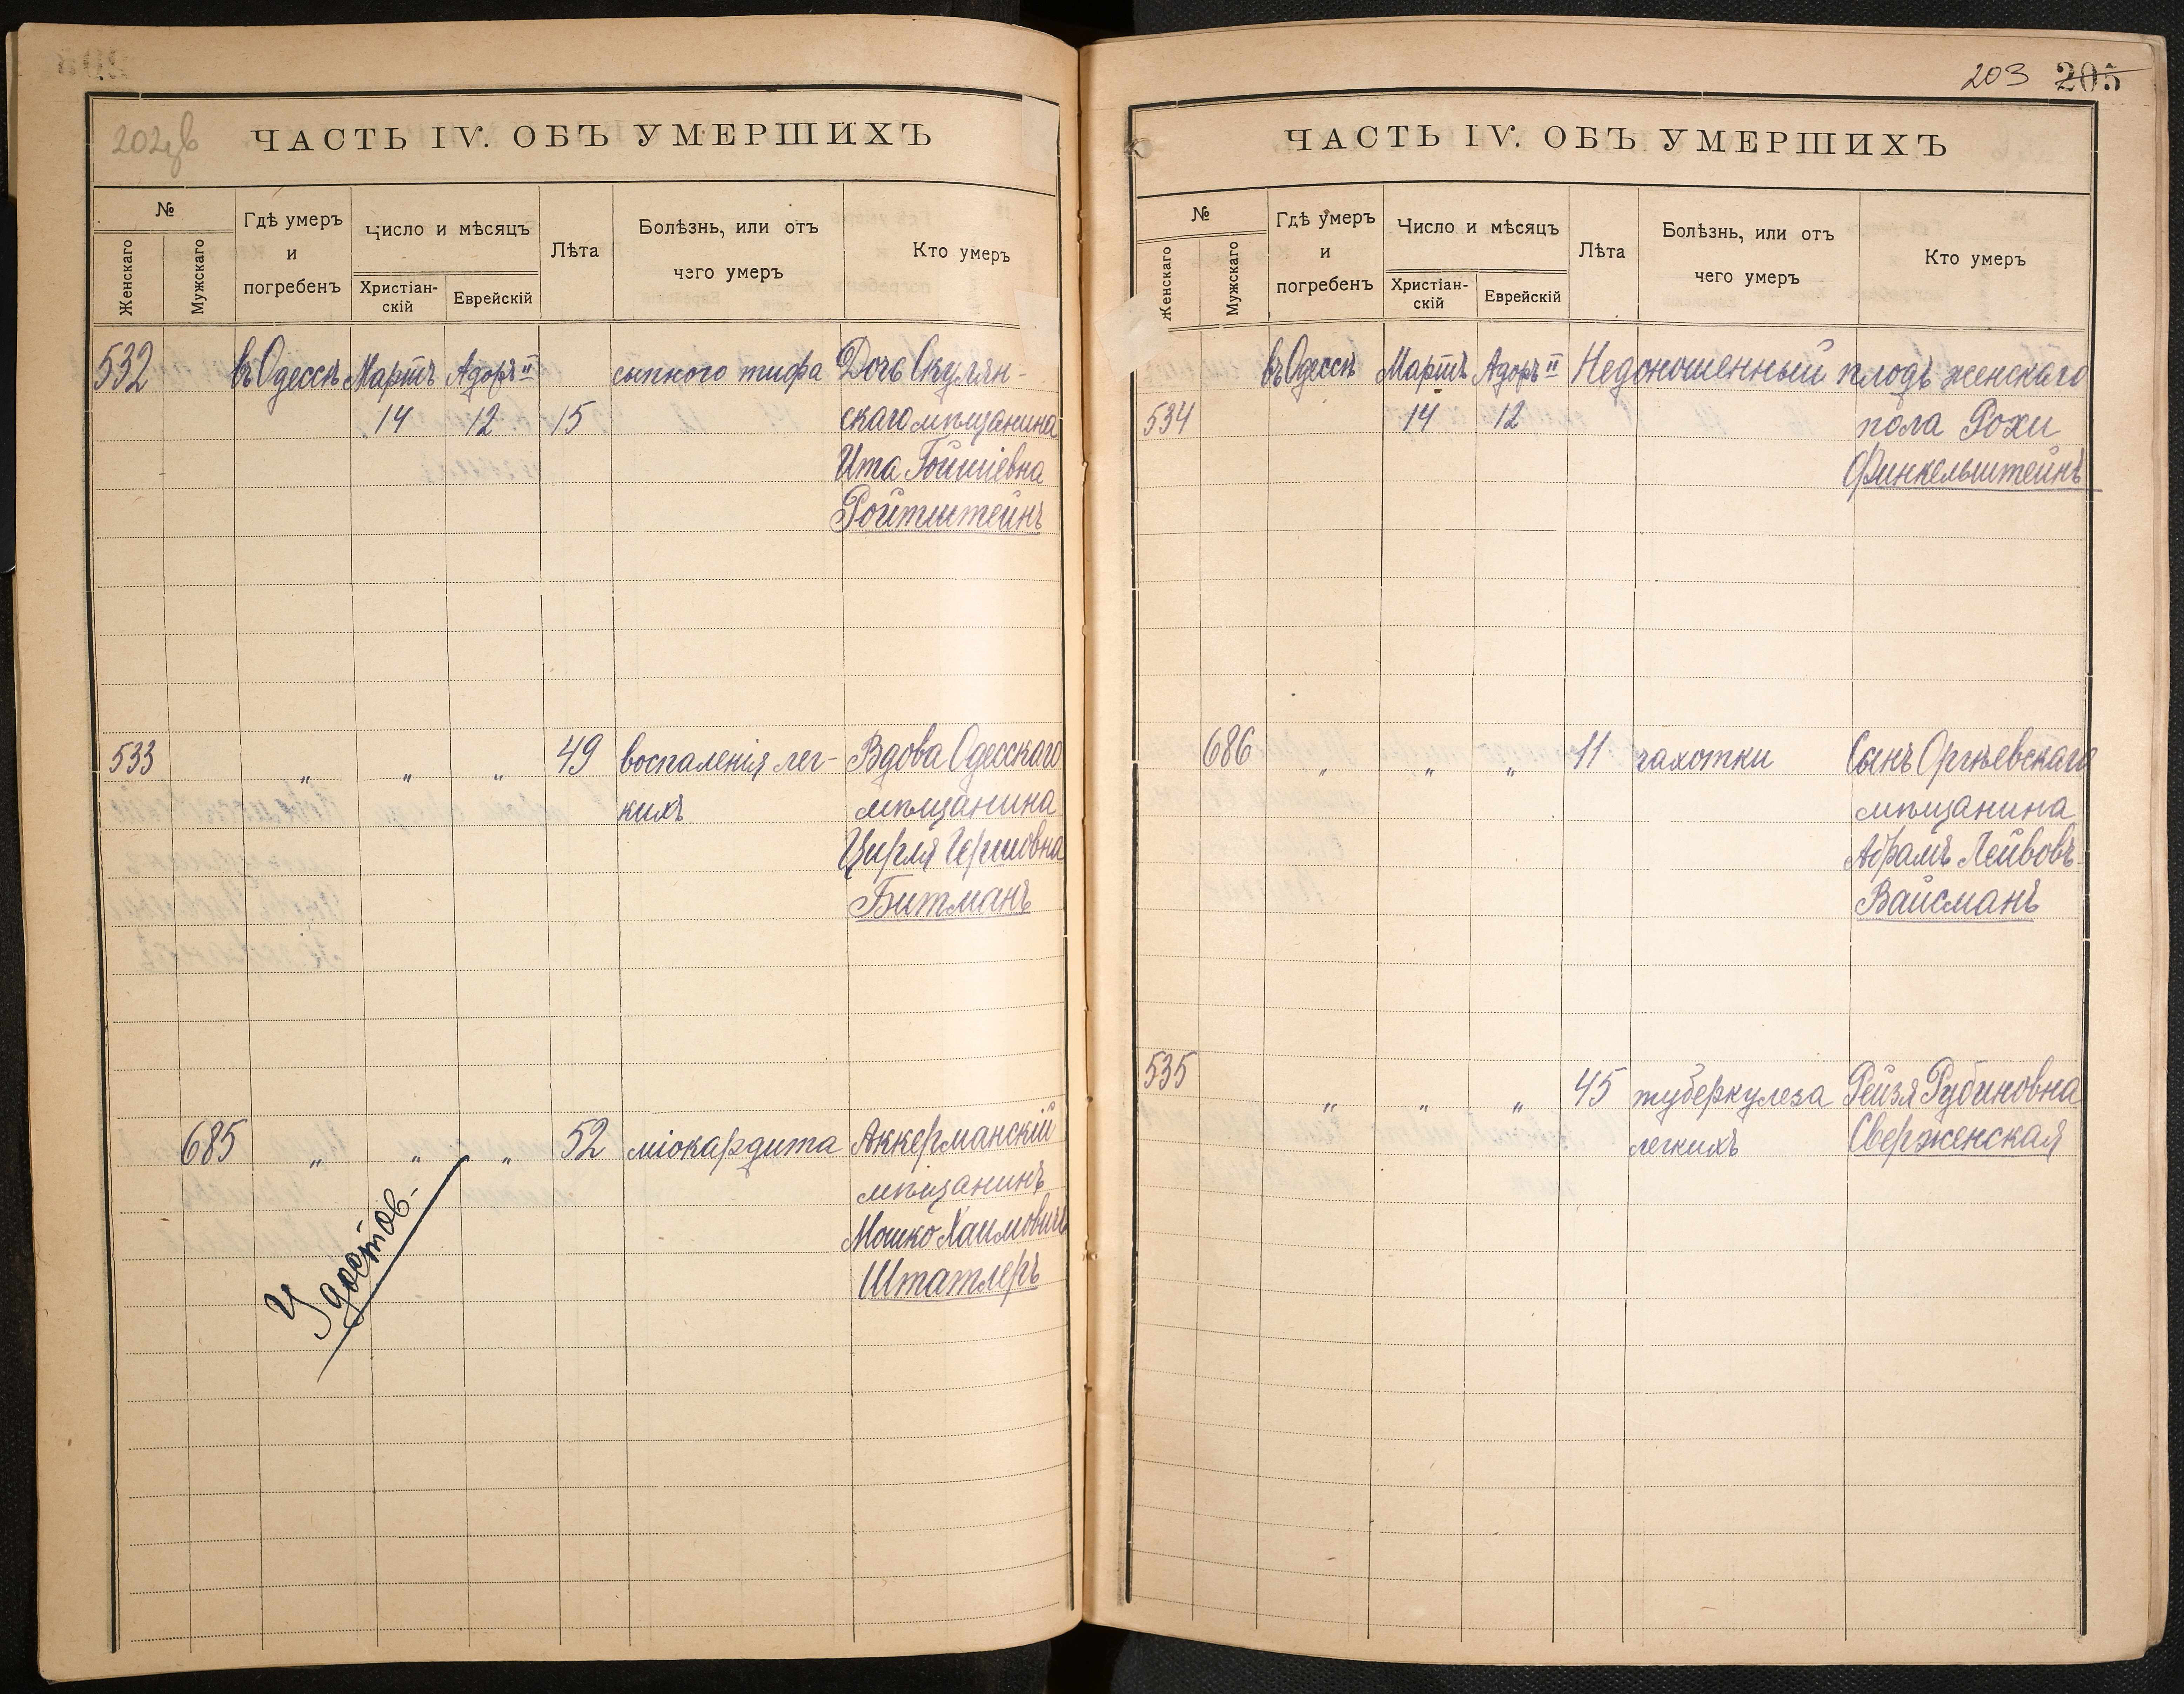 202 зв
ЧАСТЬ IV. ОБЪ УМЕРШИХЪ
№
Женскаго
Мужскаго
Гдѣ умеръ
и
погребенъ
Число и мѣсяцъ
Христіан-
скій
Еврейскій
Лѣта
Болѣзнь, или отъ
чего умеръ
Кто умеръ
532 въ Одессѣ Мартъ Адоръ II сыпного тифа Дочь Скулян-
14 12 15 скаго мѣщанина
Ита Гойшіевна
Ройтштейнъ
533 " " " 49 воспаленія лег- Вдова Одесскаго
кихъ мѣщанина
Цирля Гершовна
Битманъ
685 " " " 52 міокардита Аккерманскій
мѣщанинъ
Мошко Хаимовичъ
Штатлеръ
Удостов-
203 205
ЧАСТЬ IV. ОБЪ УМЕРШИХЪ
№
Женскаго
Мужскаго
Гдѣ умеръ
и
погребенъ
Число и мѣсяцъ
Христіан-
скій
Еврейскій
Лѣта
Болѣзнь, или отъ
чего умеръ
Кто умеръ
въ Одессѣ Мартъ Адоръ II Недоношенный плодъ женскаго
534 14 12 пола Рохи
Финкельштейнъ
686 " " " 11 чахотки Сынъ Оргѣевскаго
мѣщанина
Абрамъ Лейвовъ
Вайсманъ
535
" " " 45 туберкулеза Рейзя Рубиновна
легкихъ Сверженская